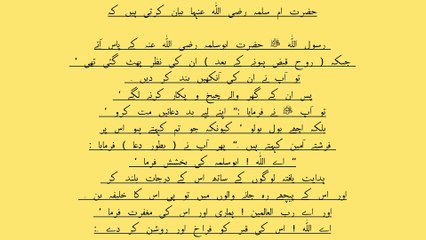 حضرت ام سلمہ رضی اللہ عنہا بیان کرتی ہیں کہ
رسول اللہ ﷺ حضرت ابوسلمہ رضی اللہ عنہ کے پاس آئے
جبکہ ( روح قبض ہونے کے بعد ) ان کی نظر پھٹ گئی تھی ‘
تو آپ نے ان کی آنکھیں بند کر دیں ۔
پس ان کے گھر والے چیخ و پکار کرنے لگے ‘
تو آپ ﷺ نے فرمایا :’’ اپنے لیے بد دعائیں مت کرو ‘
بلکہ اچھے بول بولو ‘ کیونکہ جو تم کہتے ہو اس پر
فرشتے آمین کہتے ہیں ۔‘‘ پھر آپ نے ( بطور دعا ) فرمایا :
’’ اے اللہ ! ابوسلمہ کی بخشش فرما ‘
ہدایت یافتہ لوگوں کے ساتھ اس کے درجات بلند کر
اور اس کے پیچھے رہ جانے والوں میں تو ہی اس کا خلیفہ بن ۔
اور اے رب العالمین ! ہماری اور اس کی مغفرت فرما ‘
اے اللہ ! اس کی قبر کو فراخ اور روشن کر دے ۔: